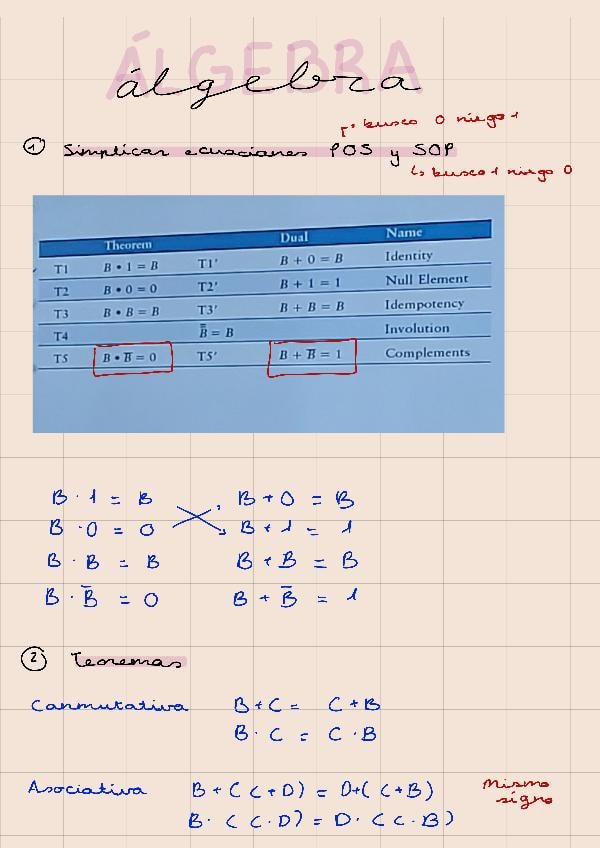 ÁLGEBRA
álgebra
↱ busco 0 niego 1
① Simplicar ecuaciones POS y SOP
↳ busco 1 niego 0
Theorem Dual Name
T1 B • 1 = B T1' B + 0 = B Identity
T2 B • 0 = 0 T2' B + 1 = 1 Null Element
T3 B • B = B T3' B + B = B Idempotency
T4 B̿ = B Involution
T5 B • B̅ = 0 T5' B + B̅ = 1 Complements
B · 1 = B B + 0 = B
B · 0 = 0 B + 1 = 1
B · B = B B + B = B
B · B̅ = 0 B + B̅ = 1
② Teoremas
Conmutativa B + C = C + B
B · C = C · B
Asociativa B + (C + D) = D + (C + B) Mismo
signo
B · (C · D) = D · (C · B)